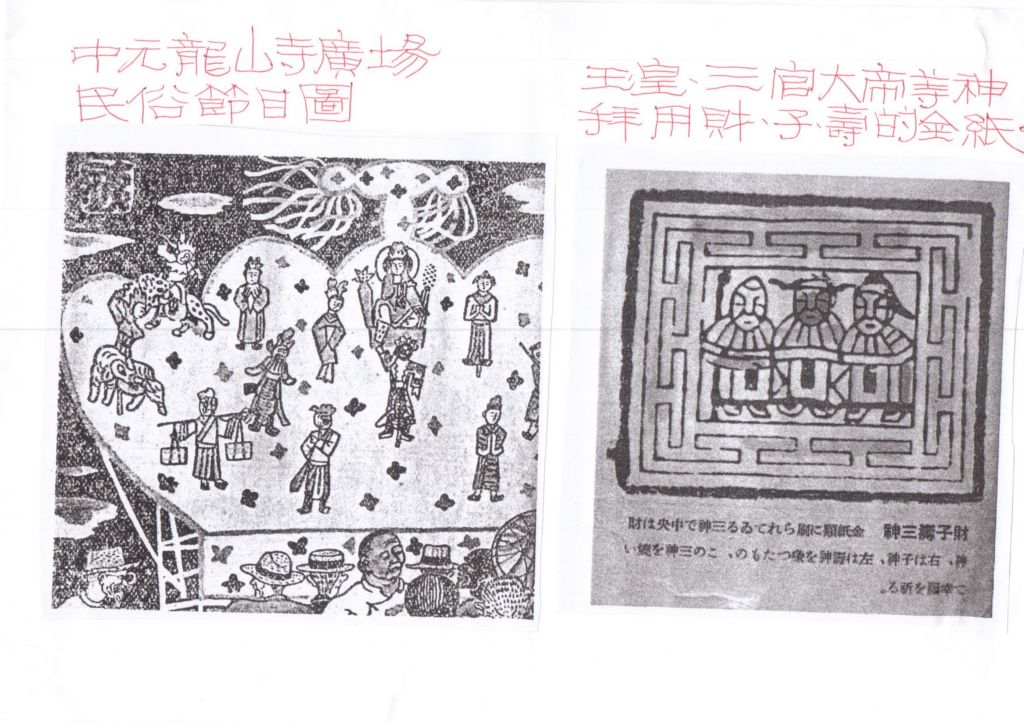 中元龍山寺廣場
民俗節目圖
玉皇、三官大帝等神
拜用財、子、壽的金紙。
財子壽三神 金紙類に刷られてゐる三神で中央は財
神、右は子神、左は壽神を象つたもの、この三神を燒い
て幸福を祈る。